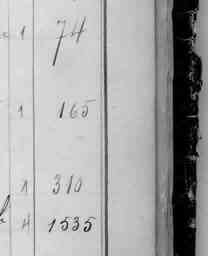 1 74
1 165
1 310
4 1535